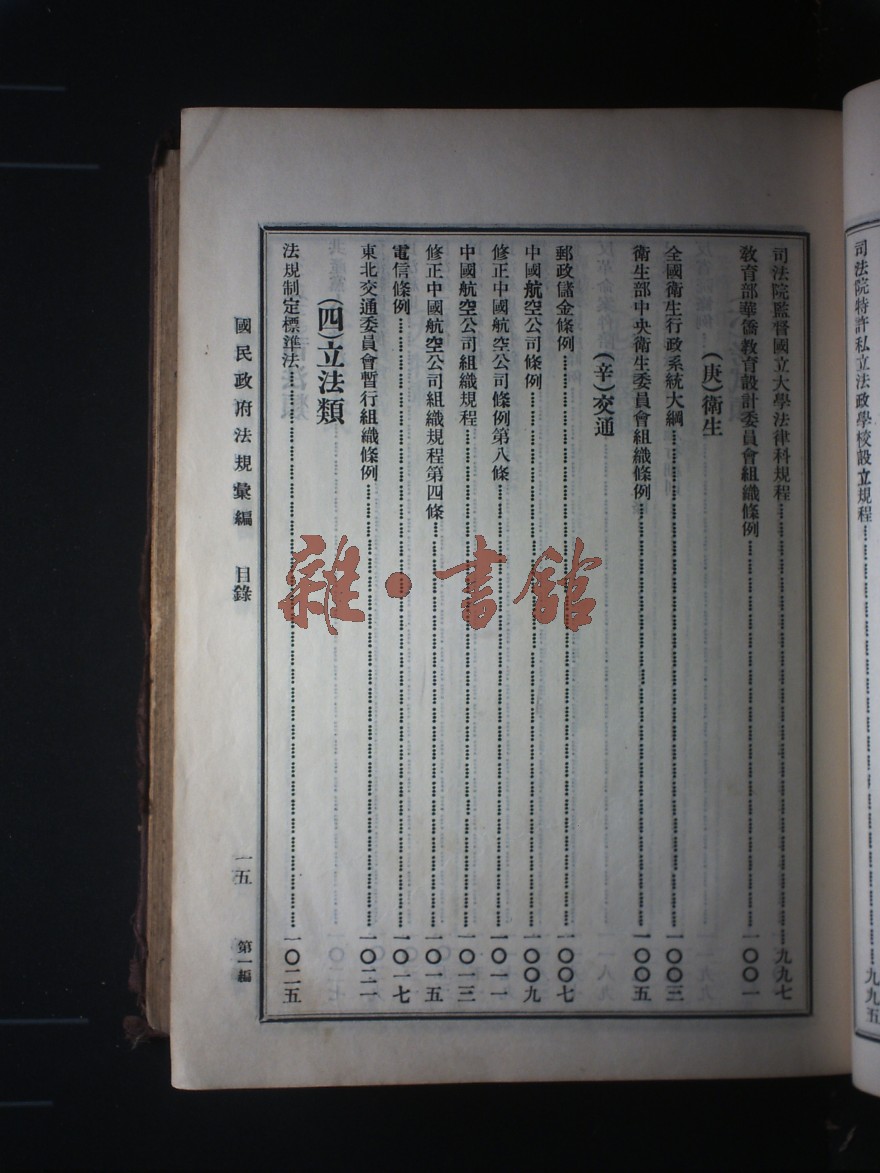 司法院特許私立法政學校設立規程……九九五
司法院監督國立大學法律科規程……九九七
教育部華僑教育設計委員會組織條例……一〇〇一
(庚)衛生
全國衛生行政系統大綱……一〇〇三
衛生部中央衛生委員會組織條例……一〇〇五
(辛)交通
郵政儲金條例……一〇〇七
中國航空公司條例……一〇〇九
修正中國航空公司條例第八條……一〇一一
中國航空公司組織規程……一〇一三
修正中國航空公司組織規程第四條……一〇一五
電信條例……一〇一七
東北交通委員會暫行組織條例……一〇二一
(四)立法類
法規制定標準法……一〇二五
國民政府法規彙編 目錄 一五 第一編
雜·書館